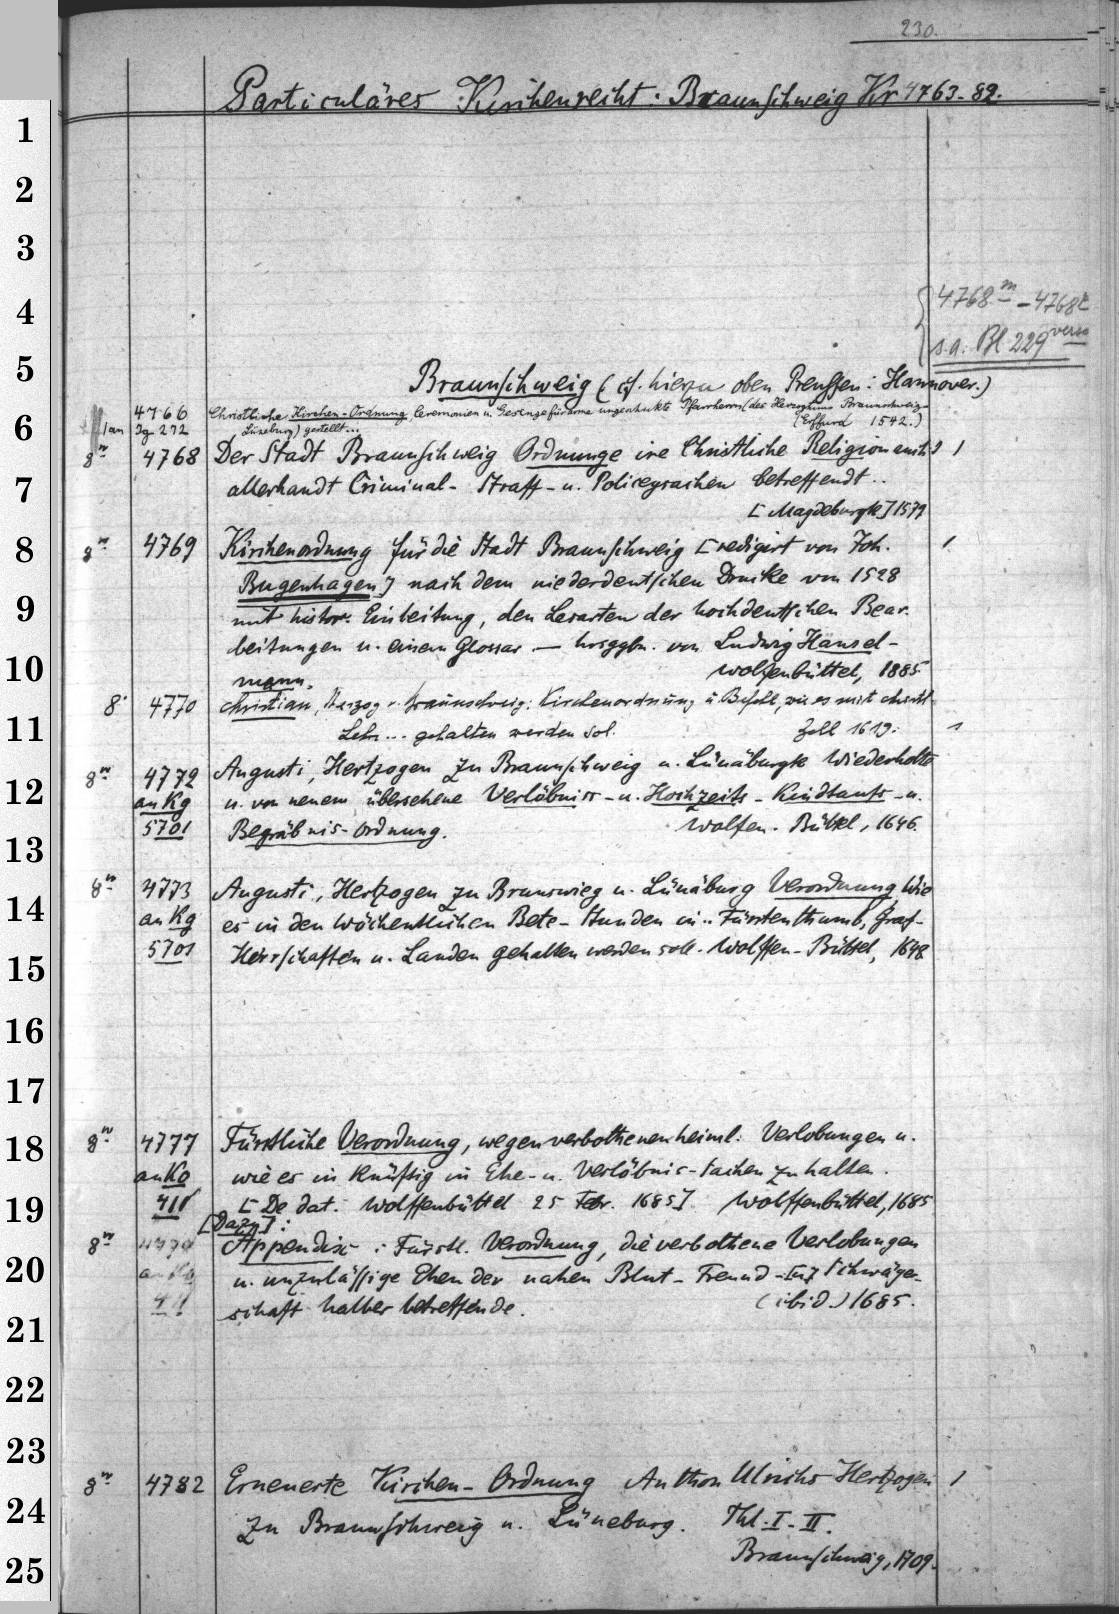 230.
Particuläres Kirchenrecht: Braunschweig Kr 4763-82.
1
2
3
4768m - 4768t
4
s.a. Bl 229 verso
5
Braunschweig (cf. hierzu oben Preussen: Hannover.)
4766 Christliche Kirchen-Ordnung, Ceremonien u. Gesenge für arme ungeschickte Pfarrherrn (des Herzogtums Braunschweig-
6
1 an Ig 272 Lüneburg) gestellt... (Erffurd 1542.)
8n 4768 Der Stadt Braunschweig Ordnunge ire Christliche Religion auch 1
7
allerhandt Criminal- Straff- u. Policeysachen betreffendt..
[Magdeburgk] 1579
8
8n 4769 Kirchenordnung für die Stadt Braunschweig [redigirt von Joh. 1
Bugenhagen] nach dem niederdeutschen Drucke von 1528
9
mit histor. Einleitung, den Lesarten der hochdeutschen Bear-
beitungen u. einem Glossar — hrsggbn. von Ludwig Hänsel-
10
mann. Wolfenbüttel, 1885
8° 4770 Christian, Herzog v. Braunschweig: Kirchenordnung u. Befehl, wie es mit christl.
11
Lehr... gehalten werden sol. Zell 1619. 1
8n 4772 Augusti, Hertzogen zu Braunschweig u. Lünäburgk Wiederholte
12
an Kg u. von neuem übersehene Verlöbniss- u. Hochzeits- Kindtaufs- u.
5701 Begräbnis-Ordnung. Wolfen-Büttel, 1646.
13
8n 4773 Augusti, Hertzogen zu Brunswieg u. Lünäburg Verordnung, Wie
14
an Kg es in den Wöchentlichen Bete-Stunden in.. Fürstenthumb, Graf-
5701 Herrschaften u. Landen gehalten werden soll. Wolffen-Büttel, 1648
15
16
17
18
8n 4777 Fürstliche Verordnung, wegen verbothenen heiml. Verlobungen u.
an Ko wie es in künftig in Ehe- u. Verlöbnis-Sachen zu halten.
19
411 [De dat. Wolffenbüttel 25 Febr. 1685]. Wolffenbüttel, 1685
[Dazu]:
8n Appendix: Fürstl. Verordnung, die verbothene Verlobungen
20
u. unzulässige Ehen der nahen Blut-Freund-[u.] Schwäger-
411 schaft halber betreffende. (ibid.) 1685.
21
22
23
8n 4782 Erneuerte Kirchen-Ordnung Anthon Ulrichs Hertzogen 1
24
zu Braunschweig u. Lüneburg. Thl. I-II.
Braunschweig, 1709.
25